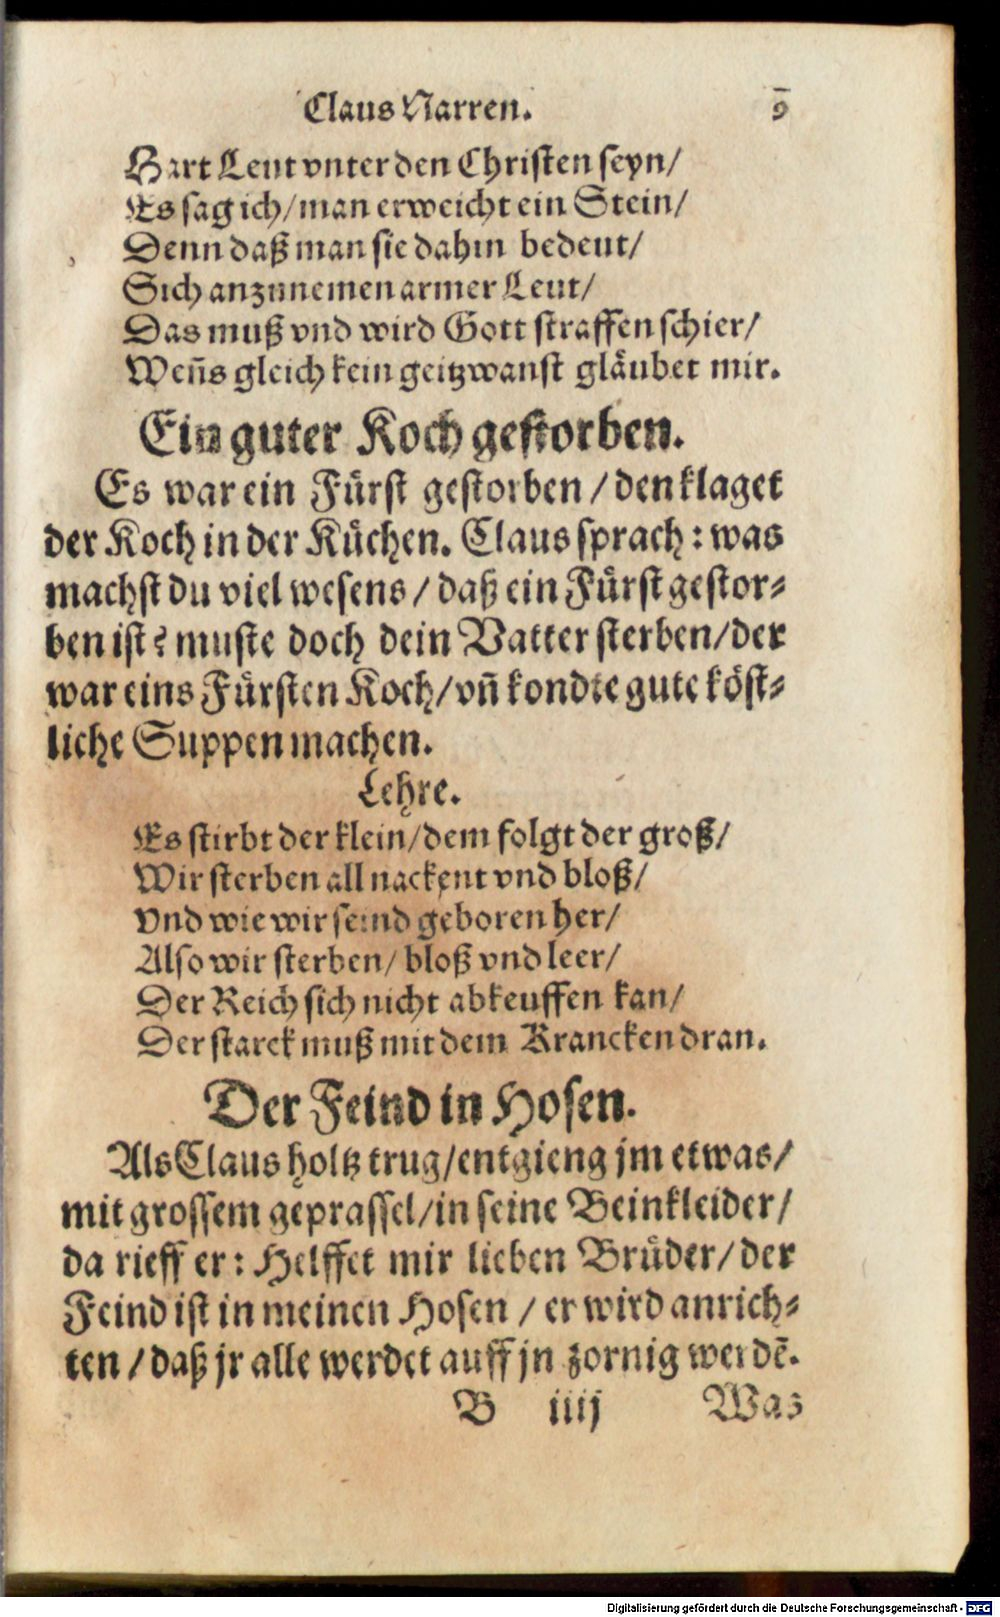 Claus Narren. 9
Hart Leut vnter den Christen seyn/
Es sag ich/man erweicht ein Stein/
Denn daß man sie dahin bedeut/
Sich anzunemen armer Leut/
Das muß vnd wird Gott straffen schier/
Weñs gleich kein geitzwanst gläubet mir.
Ein guter Koch gestorben.
Es war ein Fürst gestorben/den klaget
der Koch in der Küchen. Claus sprach: was
machst du viel wesens/daß ein Fürst gestor⸗
ben ist? muste doch dein Vatter sterben/der
war eins Fürsten Koch/vñ kondte gute köst⸗
liche Suppen machen.
Lehre.
Es stirbt der klein/dem folgt der groß/
Wir sterben all nackent vnd bloß/
Vnd wie wir seind geboren her/
Also wir sterben/ bloß vnd leer/
Der Reich sich nicht abkeuffen kan/
Der starck muß mit dem Krancken dran.
Der Feind in Hosen.
Als Claus holtz trug/entgieng jm etwas/
mit grossem geprassel/in seine Beinkleider/
da rieff er: Helffet mir lieben Brüder/der
Feind ist in meinen Hosen / er wird anrich⸗
ten/daß jr alle werdet auff jn zornig werdē.
B iiij Was
Digitalisierung gefördert durch die Deutsche Forschungsgemeinschaft - DFG